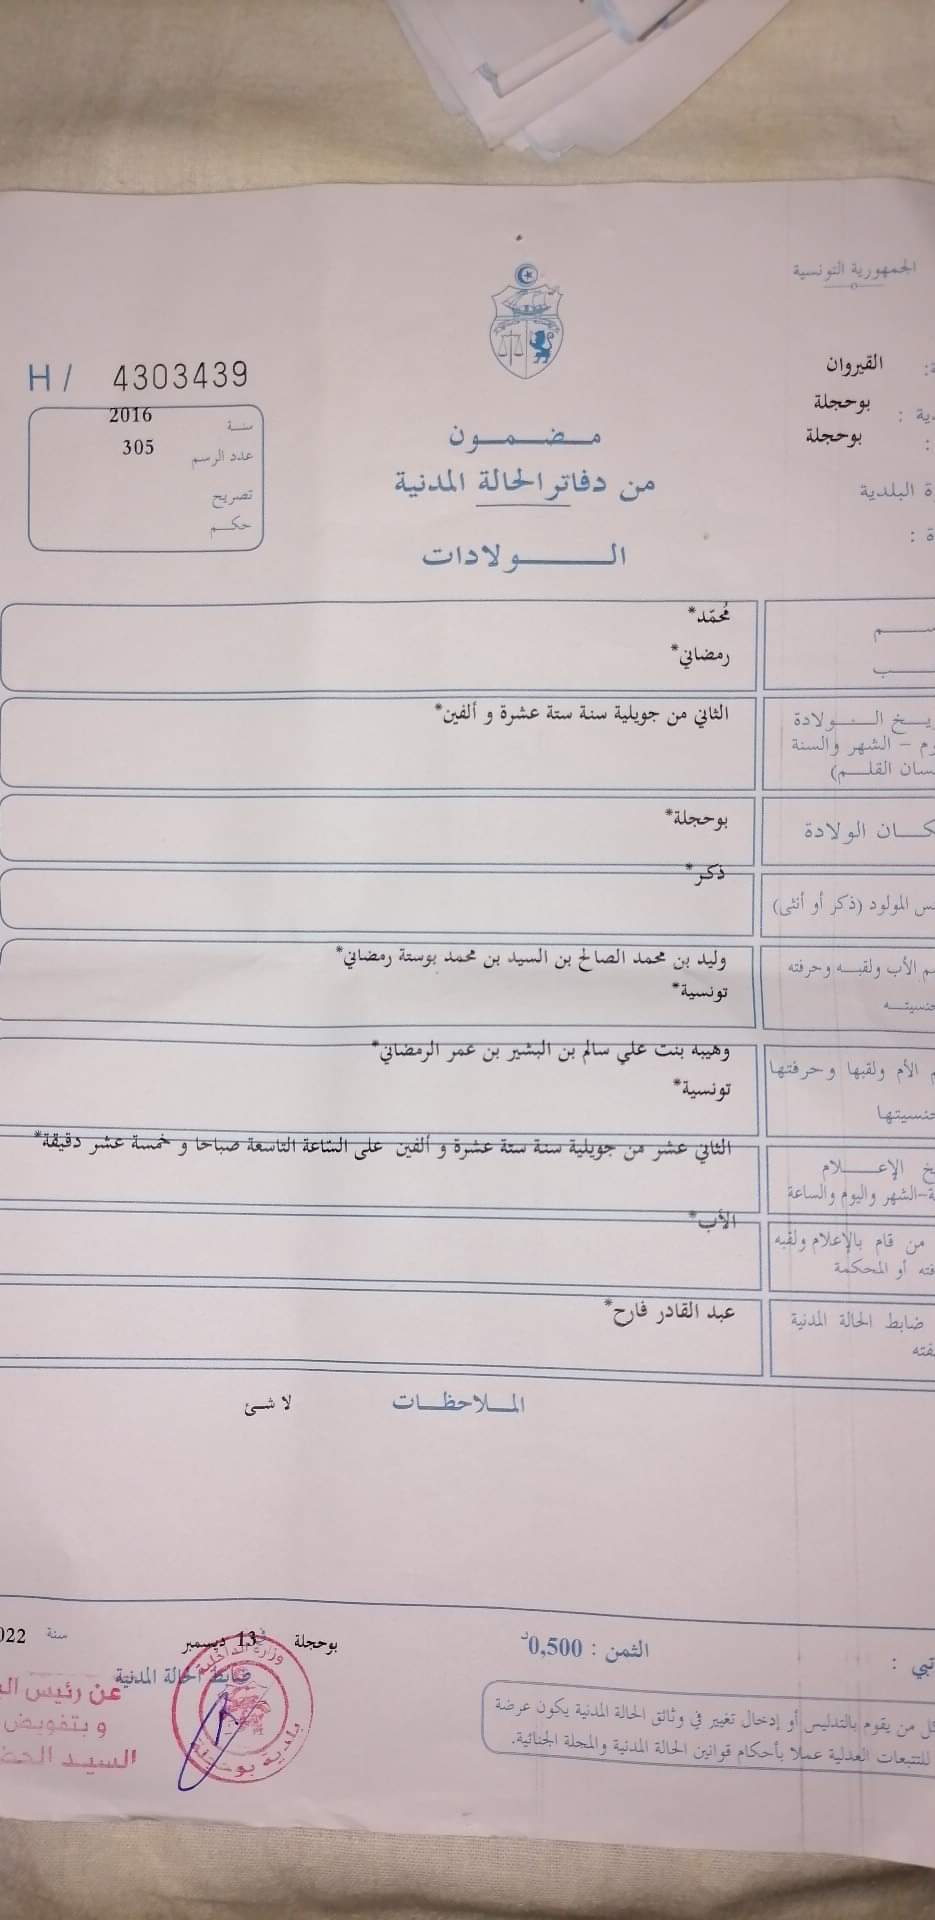 الجمهورية التونسية
القيروان
بوحجلة
بوحجلة
البلدية
H / 4303439
سنة 2016
عدد الرسم 305
تصريح
حكم
مضمون
من دفاتر الحالة المدنية
الولادات
مُحمّد*
رمضاني*
الولادة
الثاني من جويلية سنة ستة عشرة و ألفين*
– الشهر والسنة
القلم)
الولادة
بوحجلة*
المولود (ذكر أو أنثى)
ذكر*
الأب ولقبه وحرفته
وليد بن محمد الصالح بن السيد بن محمد بوستة رمضاني*
تونسية*
الأم ولقبها وحرفتها
وهيبه بنت علي سالم بن البشير بن عمر الرمضاني*
تونسية*
الإعلام
الثاني عشر من جويلية سنة ستة عشرة و ألفين على السّاعة التاسعة صباحا و خمسة عشر دقيقة*
-الشهر واليوم والساعة
من قام بالإعلام ولقبه
الأب*
أو المحكمة
ضابط الحالة المدنية
عبد القادر فارح*
الملاحظات
لا شئ
الثمن : 0,500د
بوحجلة في 13 ديسمبر سنة
ضابط الحالة المدنية
من يقوم بالتدليس أو إدخال تغيير في وثائق الحالة المدنية يكون عرضة
للتتبعات العدلية عملا بأحكام قوانين الحالة المدنية والمجلة الجنائية.
وزارة الداخلية
بلدية بوحجلة
عن رئيس
و بتفويض
السيد